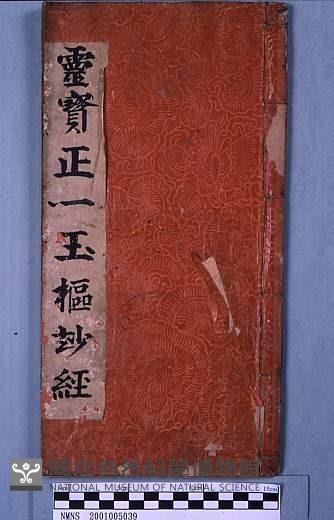 靈寶正一玉樞妙經
國立自然科學博物館
NATIONAL MUSEUM OF NATURAL SCIENCE
15cm
NMNS 2001005039